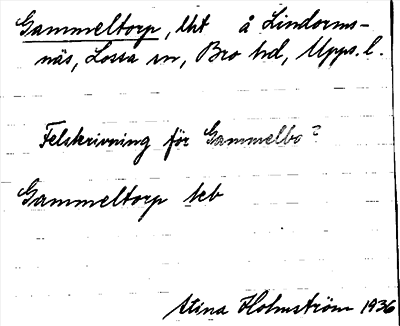 Gammeltorp, lht å Lindorms-
näs, Lossa sn, Bro hd, Upps. l.
Felskrivning för Gammelbo?
Gammeltorp
Stina Holmström 1936